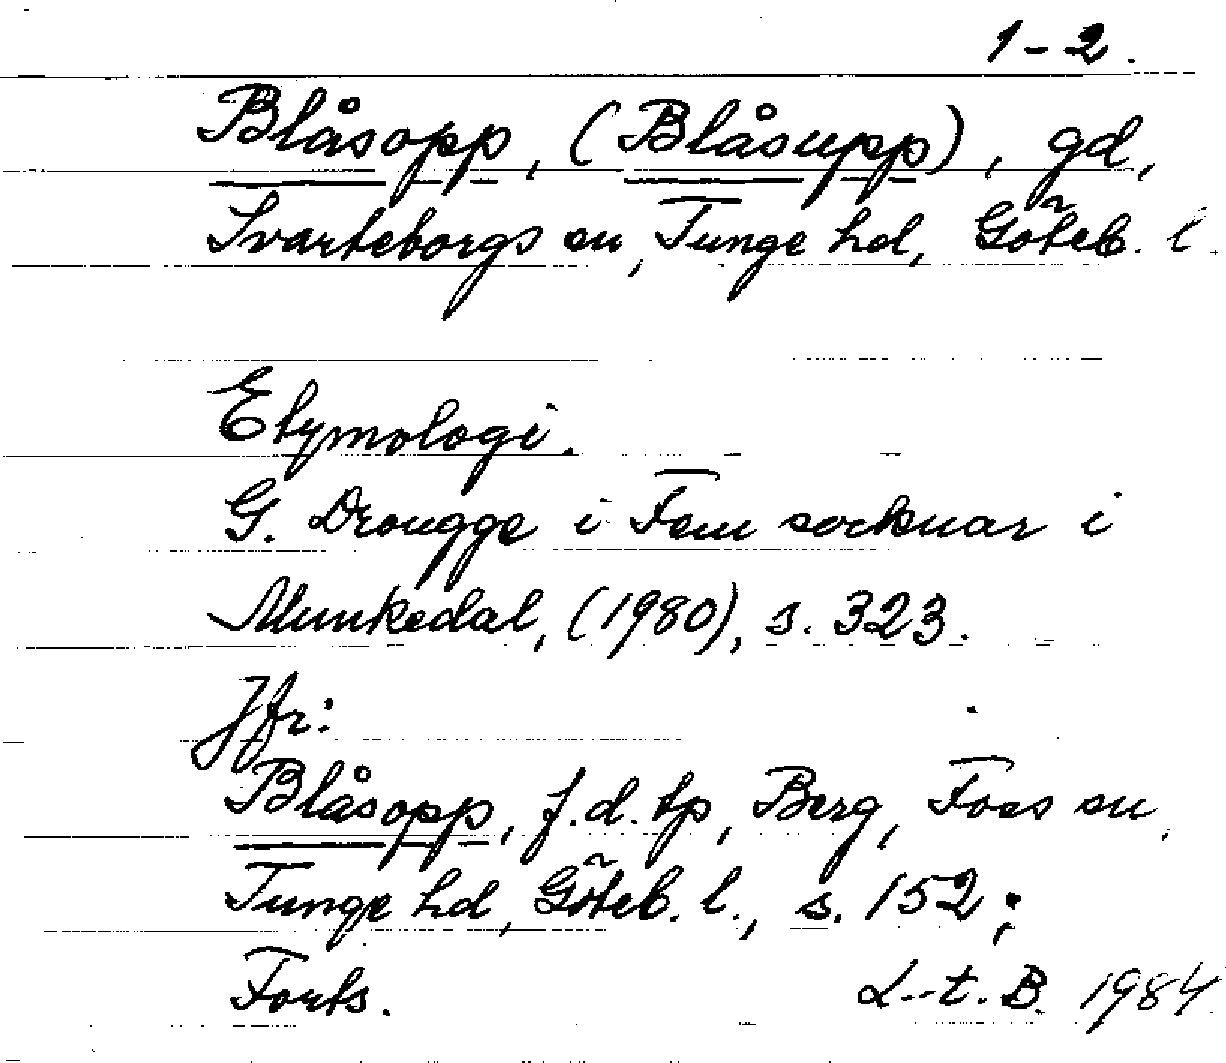 1-2.
Blåsopp, (Blåsupp), gd,
Svarteborgs sn, Tunge hd, Göteb. l.
Etymologi.
G. Drougge i Fem socknar i
Munkedal, (1980), s. 323.
Jfr:
Blåsopp, f.d. tp, Berg, Foss sn,
Tunge hd, Göteb. l., s. 152;
Forts. L-t. B. 1984